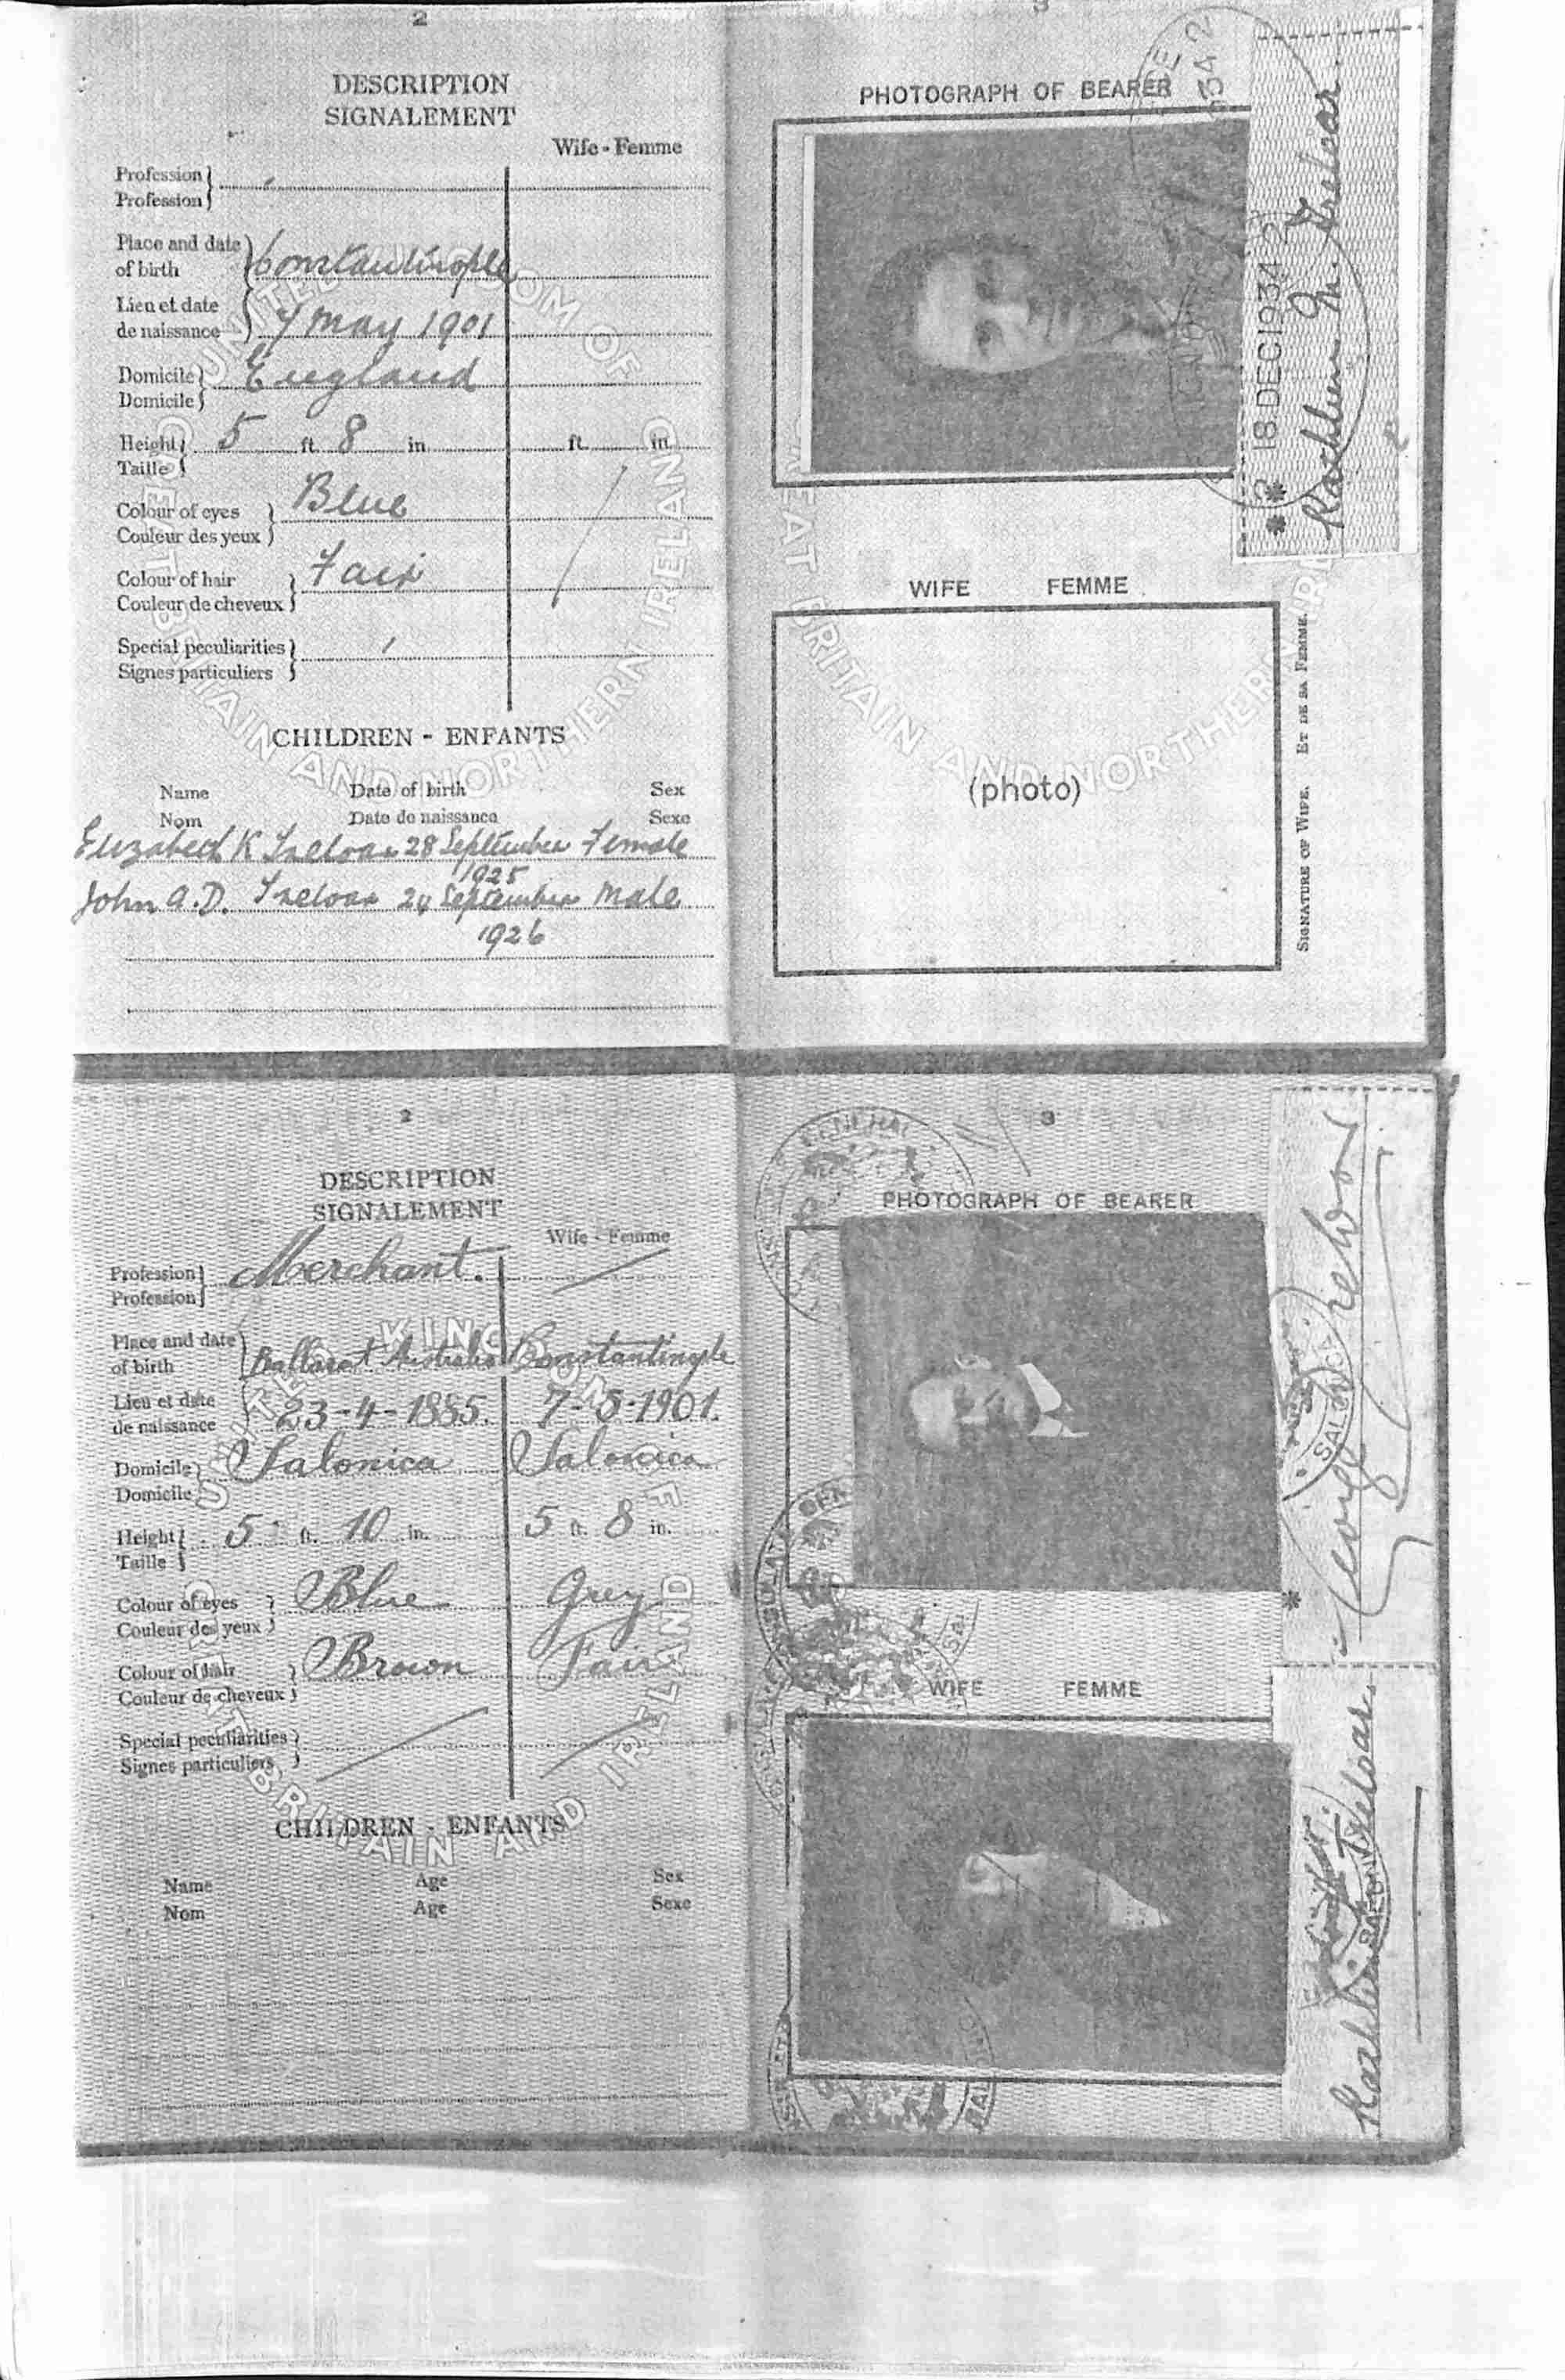 2
DESCRIPTION
SIGNALEMENT
Wife - Femme
Profession
Profession
Place and date of birth Constantinople
Lieu et date de naissance 7 May 1901
Domicile England
Domicile
Height 5 ft. 8 in. ft. in.
Taille
Colour of eyes Blue
Couleur des yeux
Colour of hair Fair
Couleur de cheveux
Special peculiarities
Signes particuliers
CHILDREN - ENFANTS
Name Date of birth Sex
Nom Date de naissance Sexe
Elizabeth K Treloar 28 September Female
1925
John A.D. Treloar 24 September Male
1926
UNITED KINGDOM OF GREAT BRITAIN AND NORTHERN IRELAND
3
PHOTOGRAPH OF BEARER
18 DEC 1934
Kathleen M. Treloar.
WIFE FEMME
(photo)
SIGNATURE OF WIFE. ET DE SA FEMME.
GREAT BRITAIN AND NORTHERN IRE
2
DESCRIPTION
SIGNALEMENT
Wife - Femme
Profession Merchant.
Profession
Place and date of birth Ballarat Australia Constantinople
Lieu et date de naissance 23-4-1885. 7-5-1901.
Domicile Salonica Salonica
Domicile
Height 5 ft. 10 in. 5 ft. 8 in.
Taille
Colour of eyes Blue Grey
Couleur des yeux
Colour of hair Brown Fair
Couleur de cheveux
Special peculiarities
Signes particuliers
CHILDREN - ENFANTS
Name Age Sex
Nom Age Sexe
UNITED KINGDOM OF GREAT BRITAIN AND IRELAND
3
PHOTOGRAPH OF BEARER
George Treloar
WIFE FEMME
Kathleen Treloar.